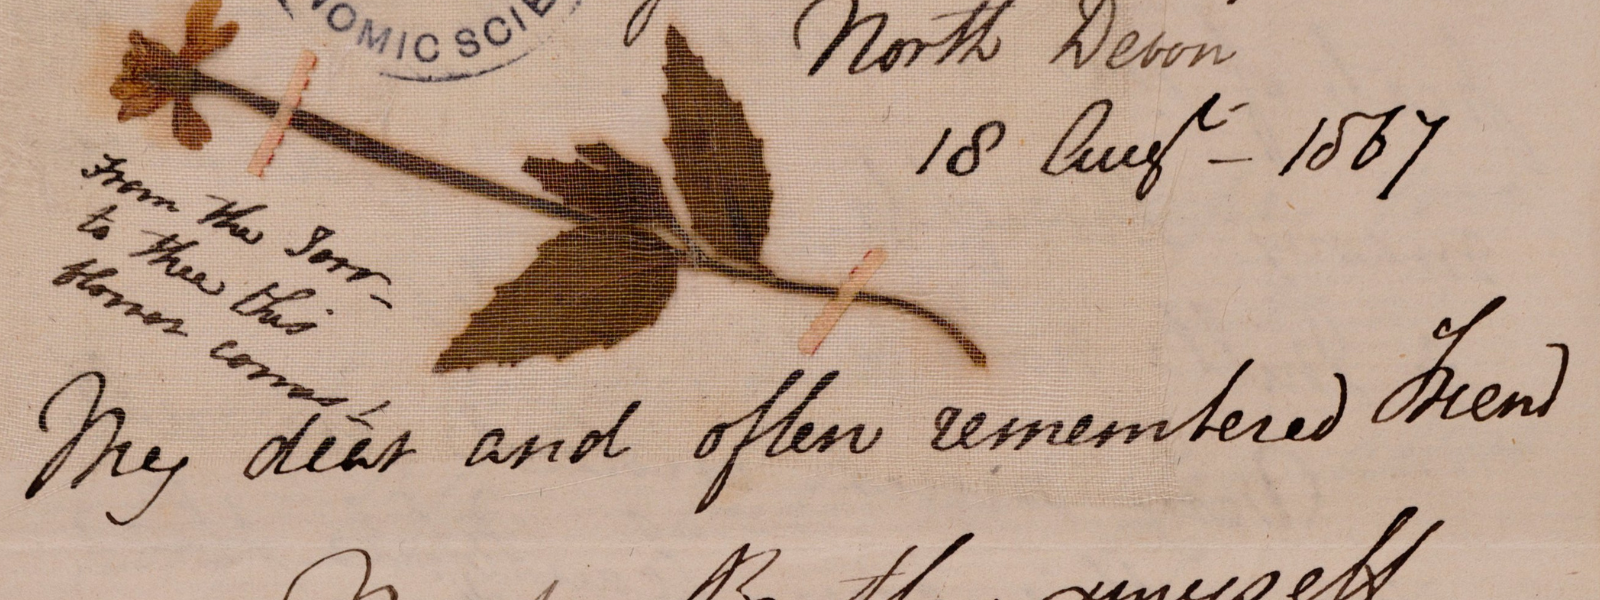 NOMIC SCIE
North Devon
18 Augst - 1867
From the Torr-
to thee this
flower comes!
My dear and often remembered Friend
myself